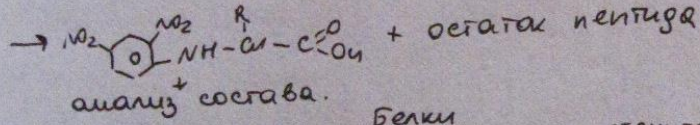 R
→ NO₂ NO₂ NH – CH – C =O OH + остаток пептида
анализ состава.
Белки